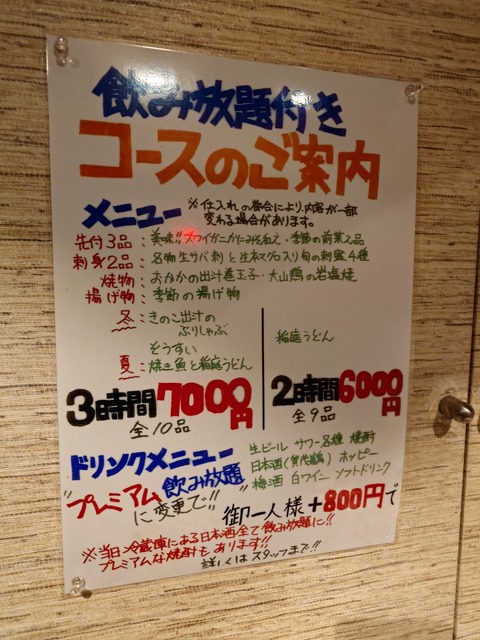 飲み放題付き
コースのご案内
メニュー
※仕入れの都合により、内容が一部
変わる場合があります。
先付3品：美味!!ズワイガニかにみそ和え・季節の前菜2品
刺身2品：名物生サバ刺と生本マグロ入り旬の刺盛4種
焼物：おかかの出汁巻玉子・大山鶏の岩塩焼
揚げ物：季節の揚げ物
冬：きのこ出汁の
ぶりしゃぶ
ぞうすい
夏：焼き魚と稲庭うどん
稲庭うどん
3時間7000円
全10品
2時間6000円
全9品
ドリンクメニュー
生ビール サワー8種 焼酎
日本酒(賀代鶴) ホッピー
梅酒 白ワイン ソフトドリンク
"プレミアム飲み放題"
に変更で!!
御一人様+800円で
※当日冷蔵庫にある日本酒全て飲み放題に!!
プレミアムな焼酎もあります!!
詳しくはスタッフまで!!